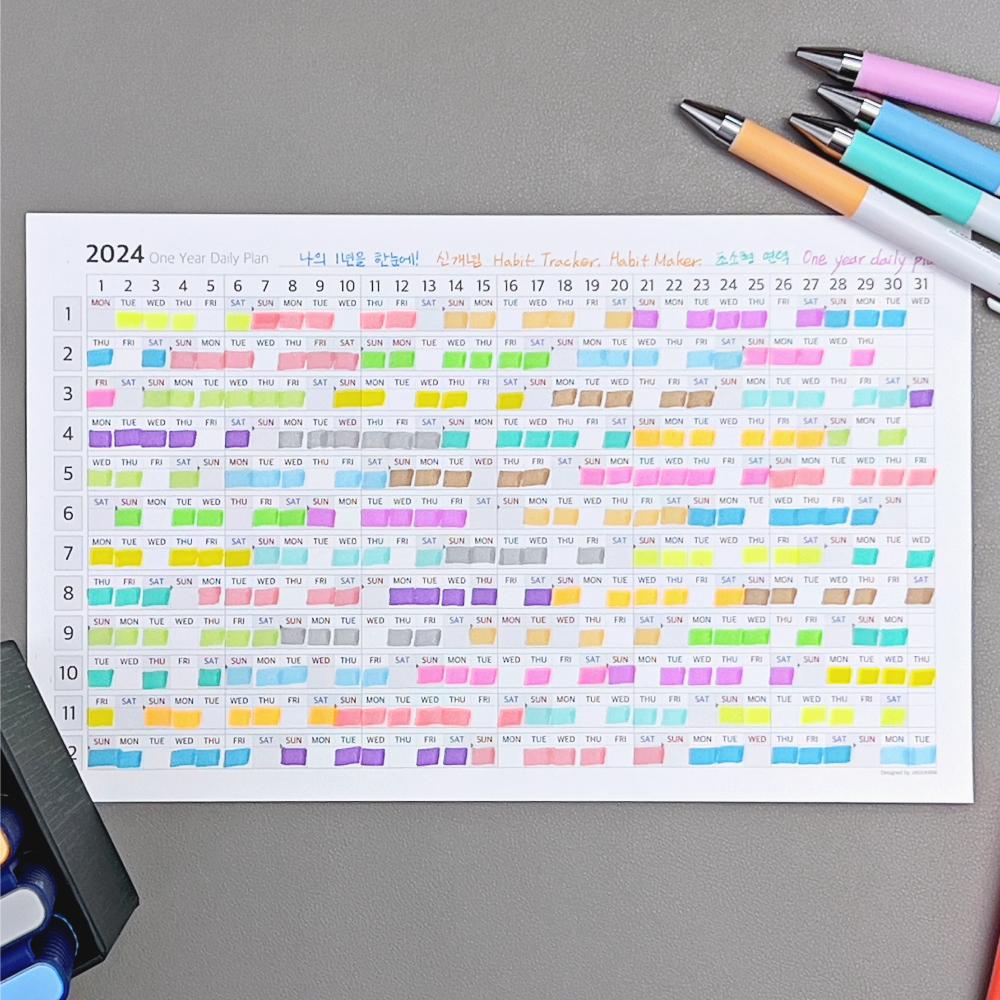 2024 One Year Daily Plan 나의 1년을 한눈에! 신개념 Habit Tracker. Habit Maker. 초소형 연력 One year daily
1 2 3 4 5 6 7 8 9 10 11 12 13 14 15 16 17 18 19 20 21 22 23 24 25 26 27 28 29 30 31
1 MON TUE WED THU FRI SAT SUN MON TUE WED THU FRI SAT SUN MON TUE WED THU FRI SAT SUN MON TUE WED THU FRI SAT SUN MON TUE WED
2 THU FRI SAT SUN MON TUE WED THU FRI SAT SUN MON TUE WED THU FRI SAT SUN MON TUE WED THU FRI SAT SUN MON TUE WED THU
3 FRI SAT SUN MON TUE WED THU FRI SAT SUN MON TUE WED THU FRI SAT SUN MON TUE WED THU FRI SAT SUN MON TUE WED THU FRI SAT SUN
4 MON TUE WED THU FRI SAT SUN MON TUE WED THU FRI SAT SUN MON TUE WED THU FRI SAT SUN MON TUE WED THU FRI SAT SUN MON TUE
5 WED THU FRI SAT SUN MON TUE WED THU FRI SAT SUN MON TUE WED THU FRI SAT SUN MON TUE WED THU FRI SAT SUN MON TUE WED THU FRI
6 SAT SUN MON TUE WED THU FRI SAT SUN MON TUE WED THU FRI SAT SUN MON TUE WED THU FRI SAT SUN MON TUE WED THU FRI SAT SUN
7 MON TUE WED THU FRI SAT SUN MON TUE WED THU FRI SAT SUN MON TUE WED THU FRI SAT SUN MON TUE WED THU FRI SAT SUN MON TUE WED
8 THU FRI SAT SUN MON TUE WED THU FRI SAT SUN MON TUE WED THU FRI SAT SUN MON TUE WED THU FRI SAT SUN MON TUE WED THU FRI SAT
9 SUN MON TUE WED THU FRI SAT SUN MON TUE WED THU FRI SAT SUN MON TUE WED THU FRI SAT SUN MON TUE WED THU FRI SAT SUN MON
10 TUE WED THU FRI SAT SUN MON TUE WED THU FRI SAT SUN MON TUE WED THU FRI SAT SUN MON TUE WED THU FRI SAT SUN MON TUE WED THU
11 FRI SAT SUN MON TUE WED THU FRI SAT SUN MON TUE WED THU FRI SAT SUN MON TUE WED THU FRI SAT SUN MON TUE WED THU FRI SAT
2 SUN MON TUE WED THU FRI SAT SUN MON TUE WED THU FRI SAT SUN MON TUE WED THU FRI SAT SUN MON TUE WED THU FRI SAT SUN MON TUE
Designed by